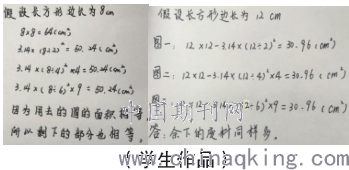 假设长方形边长为8cm
8×8=64(cm²)
3.14×(8÷2)²=50.24(cm²)
3.14×(8÷4)²×4=50.24(cm²)
3.14×(8÷6)²×9=50.24(cm²)
因为用去的圆的面积相等
所以剩下的部分也相等。
假设长方形边长为12cm
图一：12×12-3.14×(12÷2)²=30.96(cm²)
图二：12×12-3.14×(12÷4)²×4=30.96(cm²)
12×12-3.14×(12÷6)²×9=30.96(cm²)
答：余下的废料同样多。
中国期刊网
(学生作品)
www.chinaqking.com